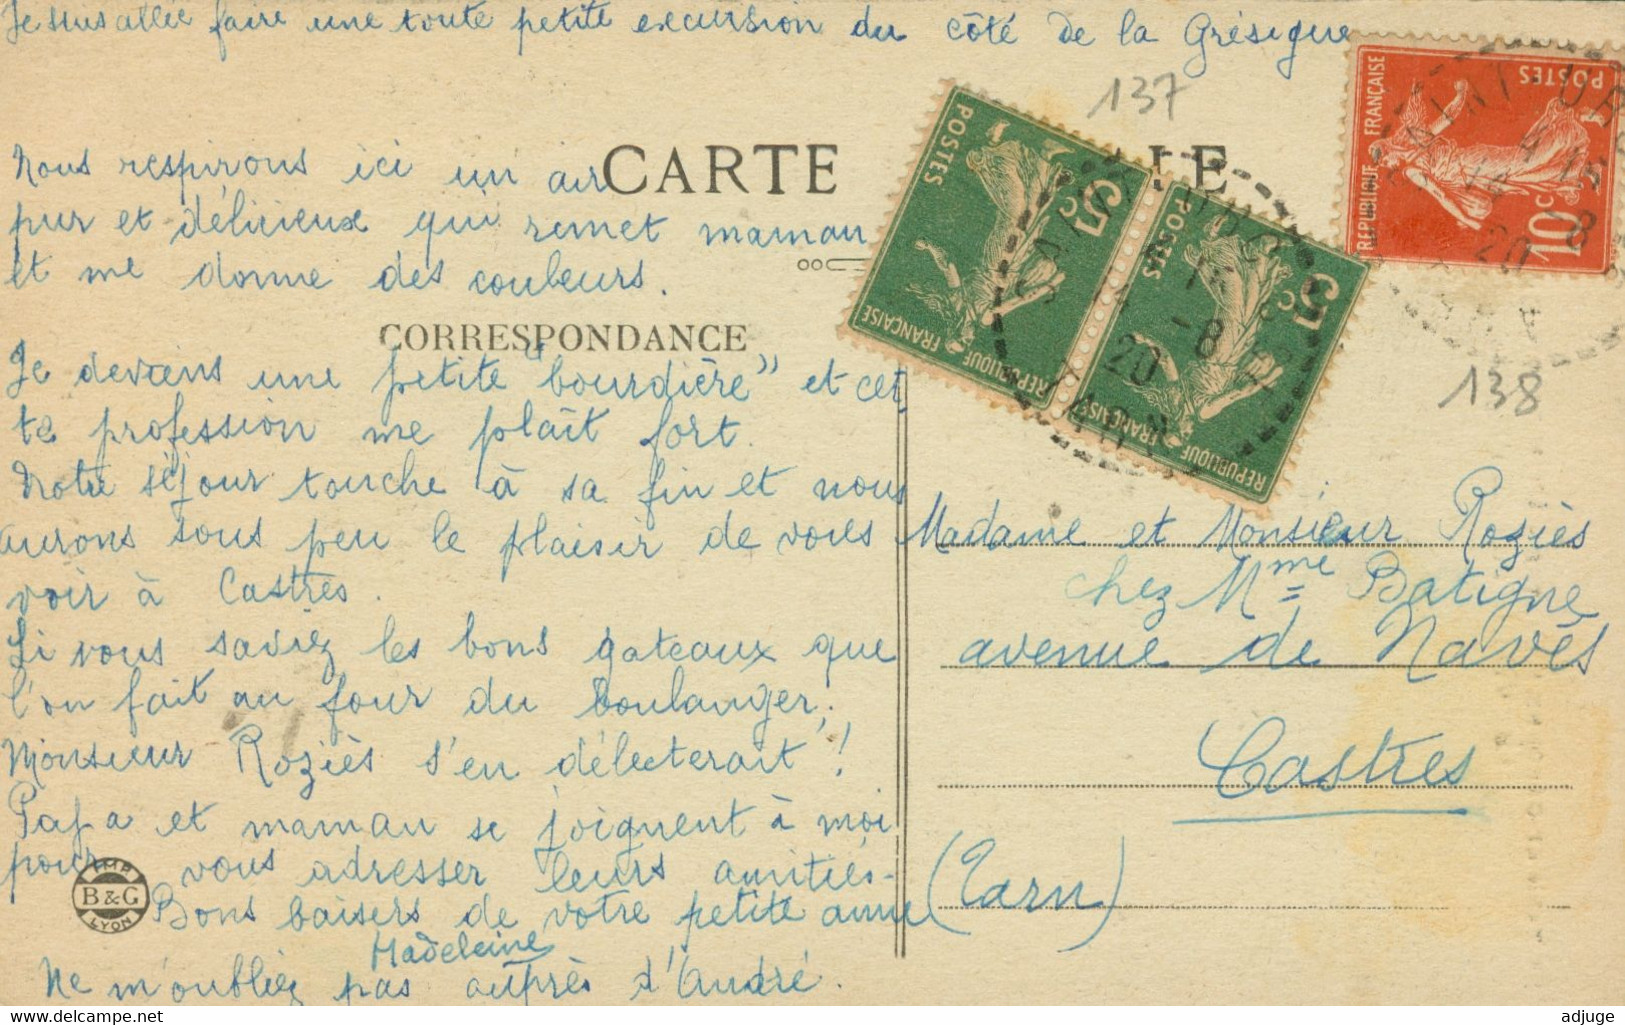 Je suis allée faire une toute petite excursion du côté de la Grésigne
137
Nous respirons ici un air
CARTE
LE
pur et délicieux qui remet maman
et me donne des couleurs.
CORRESPONDANCE
Je deviens une petite "bourdière" et cet
te profession me plaît fort.
138
Notre séjour touche à sa fin et nous
aurons sous peu le plaisir de vous
voir à Castres.
Si vous saviez les bons gateaux que
l'on fait au four du boulanger;
Monsieur Roziès s'en délecterait!
Papa et maman se joignent à moi
pour vous adresser leurs amitiés-
Bons baisers de votre petite amie
Madeleine
Ne m'oubliez pas auprès d'André.
IMP
B&G
LYON
POSTES
5c
REPUBLIQUE FRANÇAISE
POSTES
5c
REPUBLIQUE FRANÇAISE
20 -8
TARN
REPUBLIQUE FRANÇAISE
POSTES
10c
20 8
Madame et Monsieur Roziès
chez Mme Batigne
avenue de Navès
Castres
(Tarn)
www.delcampe.net
adjuge